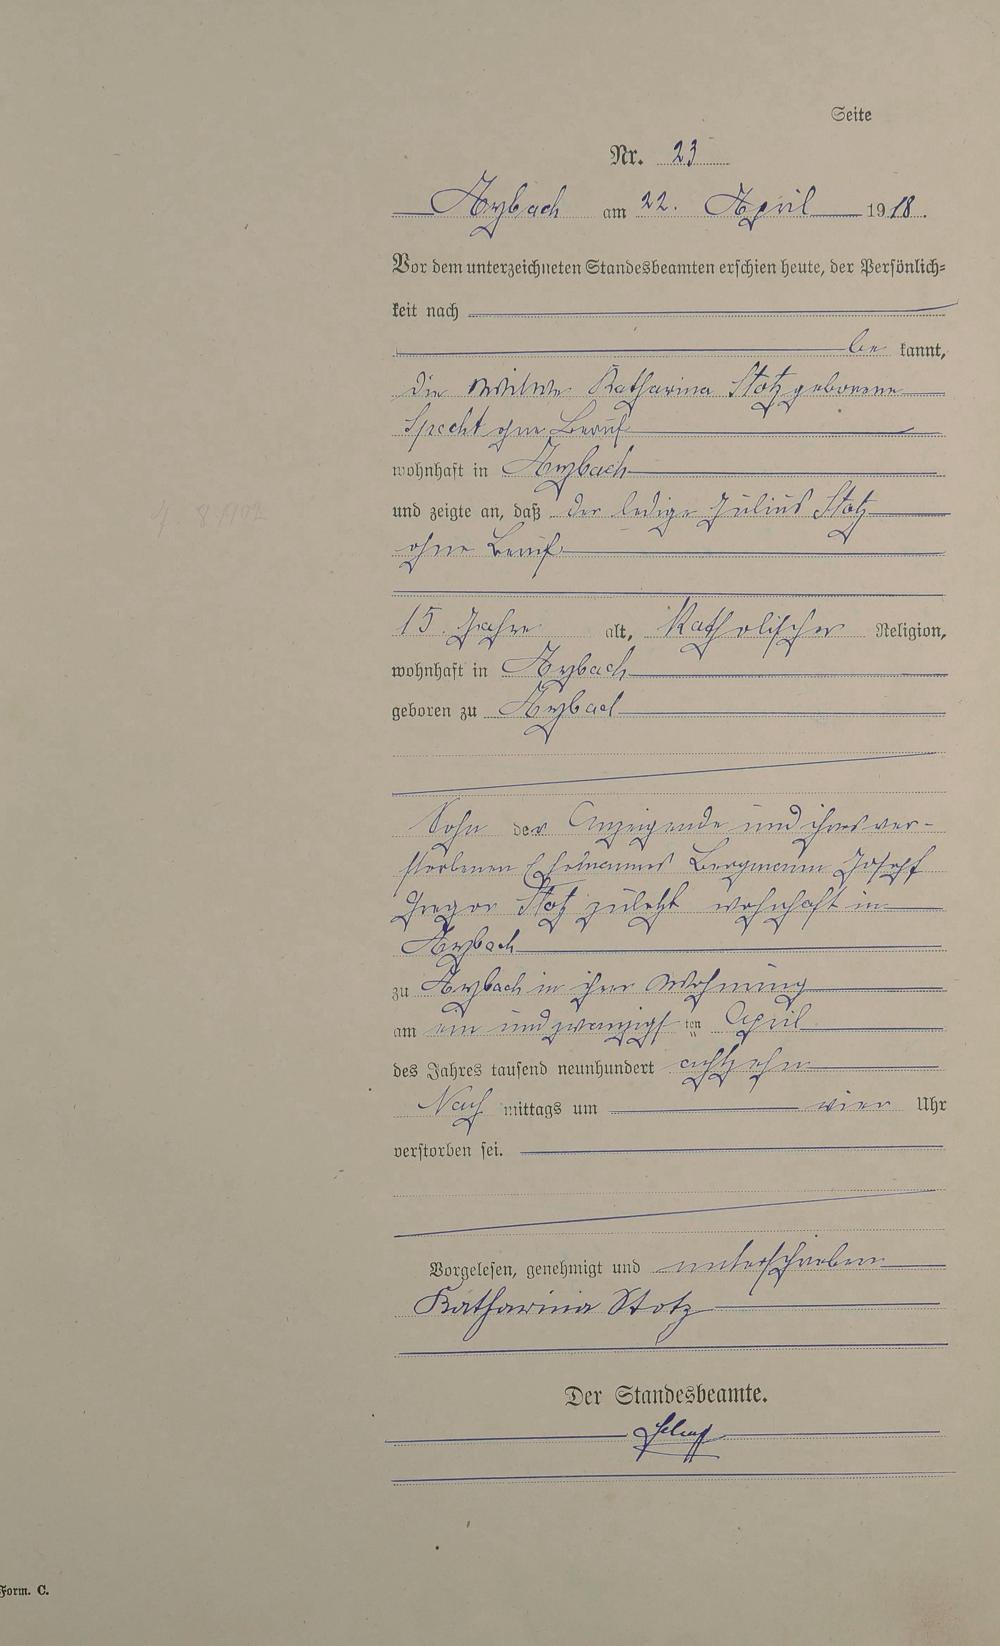 Seite
Nr. 23
Aybach am 22. April 1918.
Vor dem unterzeichneten Standesbeamten erschien heute, der Persönlich=
keit nach
be kannt,
die Witwe Katharina Stotz geborene
Specht ohne Beruf
wohnhaft in Aybach
und zeigte an, daß der ledige Julius Stotz
ohne Beruf
15 Jahre alt, Katholischer Religion,
wohnhaft in Aybach
geboren zu Aybach
Sohn der Anzeigende und ihres ver-
storbenen Ehemannes Bergmann Joseph
Gregor Stotz zuletzt wohnhaft in
Aybach
zu Aybach in ihrer Wohnung
am ein und zwanzigsten April
des Jahres tausend neunhundert achtzehn
Nach mittags um vier Uhr
verstorben sei.
Vorgelesen, genehmigt und unterschrieben
Katharina Stotz
Der Standesbeamte.
Form. C.